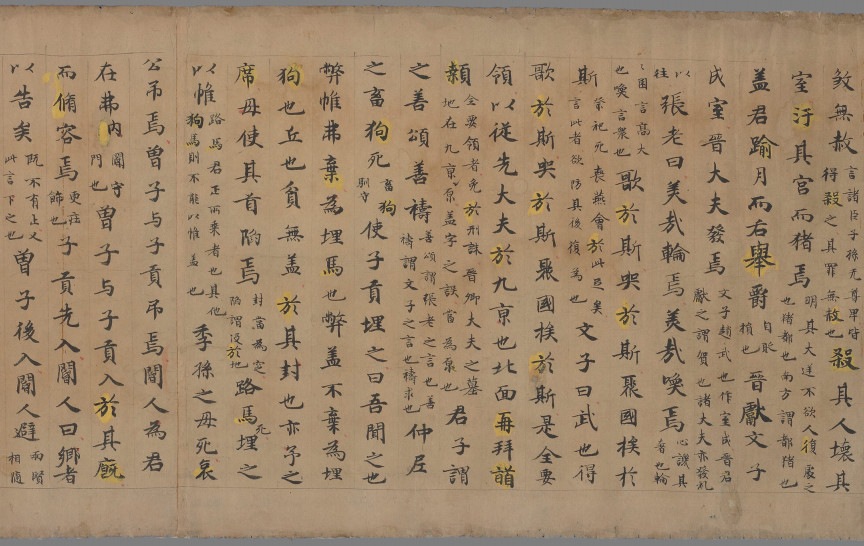 煞無赦言諸臣子孫无尊卑皆得殺之其罪無赦也殺其人壞其
室汙其官而豬焉明其大逆不欲人復處之也豬都也南方謂都豬也
盖君踰月而右舉爵自貶損也晉獻文子
成室晉大夫發焉文子趙武也作室成晉君獻之謂賀也諸大夫亦發礼
以往張老曰美哉輪焉美哉喚焉心譏其奢也輪
々囷言高大也喚言衆也歌於斯哭於斯聚國族於
斯祭祀死喪燕會於此足矣言此者欲防其後復為也文子曰武也得
歌於斯哭於斯聚國族於斯是全要
領以從先大夫於九京也北面再拜䭫
顙全要領者免於刑誅晉卿大夫之墓地在九京京盖字之誤當為原也君子謂
之善頌善禱善頌謂張老之言也善禱謂文子之言也禱求也仲尼
之畜狗死畜狗馴守使子貢埋之曰吾聞之也
弊帷弗棄為埋馬也弊盖不棄為埋
狗也丘也貧無盖於其封也亦予之
席毋使其首陷焉封當為窆陷謂没於地路馬死埋之
以帷路馬君正所乘者也其他狗馬則不能以帷盖也季孫之母死哀
公弔焉曾子与子貢弔焉閽人為君
在弗内閽守門也曾子与子貢入於其廐
而脩容焉更莊飾也子貢先入閽人曰鄉者
以告矣既不有止又此言下之也曾子後入閽人避兩賢相隨